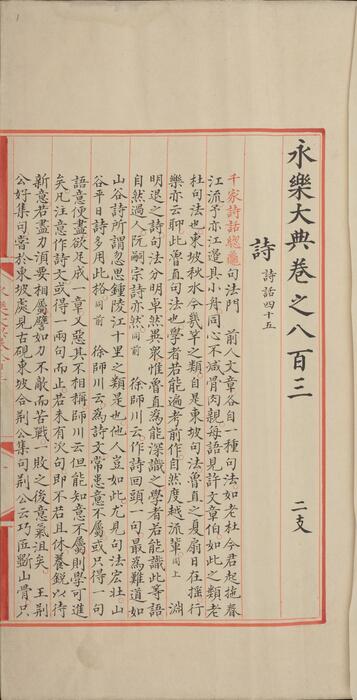 永樂大典卷之八百三
二支
詩
詩話四十五
千家詩話總龜
句法門　前人文章各自一種句法如老杜今君起拖春
江流予亦江邊具小舟同心不減骨肉親每語見許文章伯如此之類老
杜句法也東坡秋水今幾竿之類自是東坡句法魯直之夏扇日在搖行
樂亦云聊此魯直句法也學者若能遍考前作自然度越流輩
同上
淵
明退之詩句法分明卓然異眾惟魯直為能深識之學者若能識此等語
自然過人阮嗣宗詩亦然
同前
徐師川云作詩回頭一句最為難道如
山谷詩所謂忽思鍾陵江十里之類是也他人豈如此尤見句法宏壯山
谷平日詩多用此格
同前
徐師川云為詩文常患意不屬或只得一句
語意便盡欲足成一章又惡其不相稱師川云但能知意不屬則學可進
矣凡注意作詩文或得一兩句而止若未有次句即不若且休養銳以待
新意若盡力須要相屬譬如力不敵而苦戰一敗之後意氣沮矣　王荊
公好集句嘗於東坡處見古硯東坡合荊公集句荊公云巧匠斲山骨只